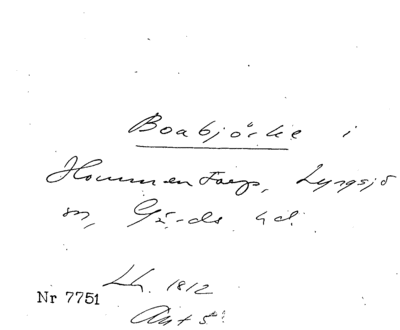 Boabjörke i
Hommentorp, Lyngsjö
sn, Gärds hd.
Lh. 1812
Nr 7751
Ant 5